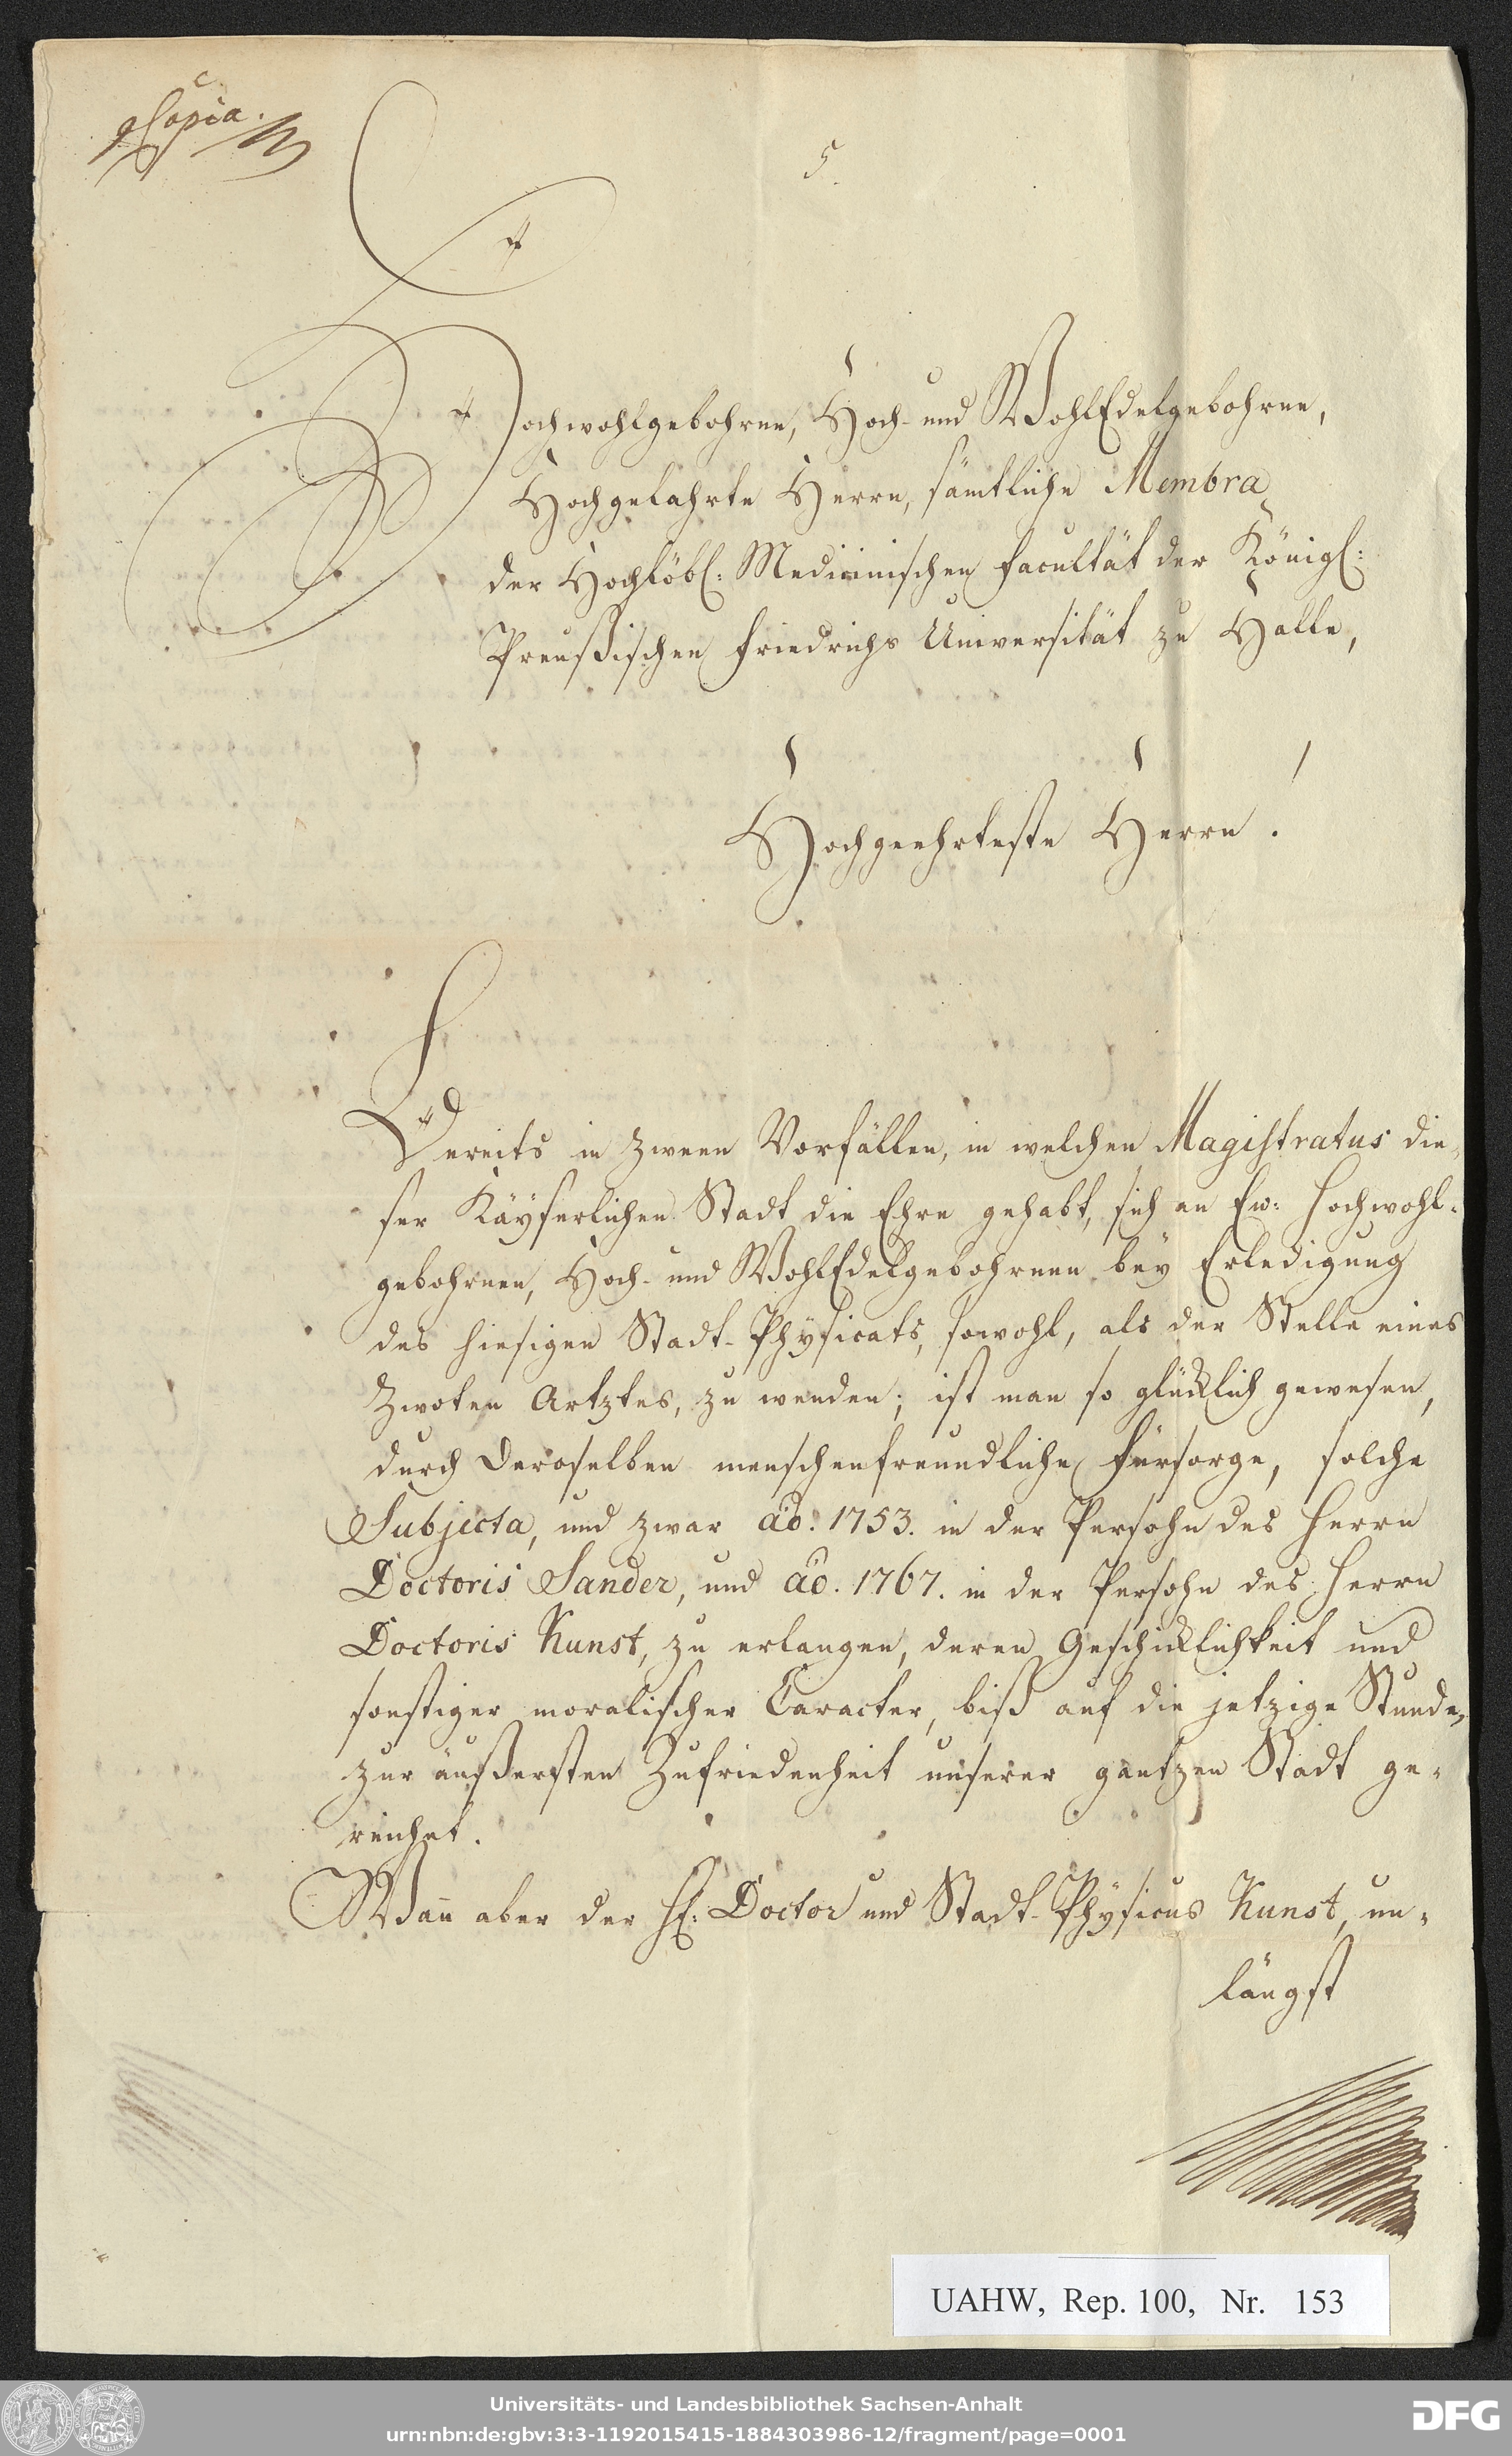 Copia.
5.
Hochwohlgebohrne, Hoch- und WohlEdelgebohrne,
Hochgelahrte Herrn, sämtliche Membra
der Hochlöbl: Medicinischen Facultät der Königl:
Preußischen Friedrichs Universität zu Halle,
Hochgeehrteste Herrn!
Bereits in zween Vorfällen, in welchen Magistratus die-
ser Käyserlichen Stadt die Ehre gehabt, sich an Ew: Hochwohl-
gebohrnen, Hoch- und WohlEdelgebohrnen bey Erledigung
des hiesigen Stadt-Physicats, sowohl, als der Stelle eines
zwoten Artztes, zu wenden; ist man so glücklich gewesen,
durch Deroselben menschenfreundliche Fürsorge, solche
Subjecta, und zwar ao. 1753. in der Persohn des Herrn
Doctoris Sander, und ao. 1767. in der Persohn des Herrn
Doctoris Kunst, zu erlangen, deren Geschicklichkeit und
sonstiger moralischer Caracter, biß auf die jetzige Stunde,
zur äußersten Zufriedenheit unserer gantzen Stadt ge-
reichet.
Wann aber der H: Doctor und Stadt-Physicus Kunst, un-
längst
UAHW, Rep. 100, Nr. 153
Universitäts- und Landesbibliothek Sachsen-Anhalt
urn:nbn:de:gbv:3:3-1192015415-1884303986-12/fragment/page=0001
DFG